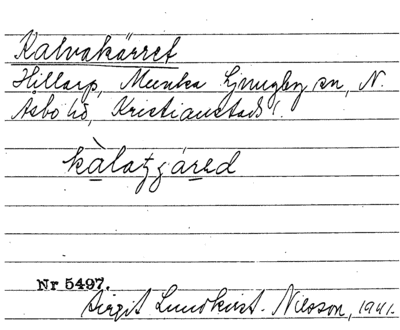 Kalvakärret
Hillarp, Munka Ljungby sn, N.
Åsbo hd, Kristianstads l.
Nr 5497.
Birgit Lundkvist-Nilsson, 1941.